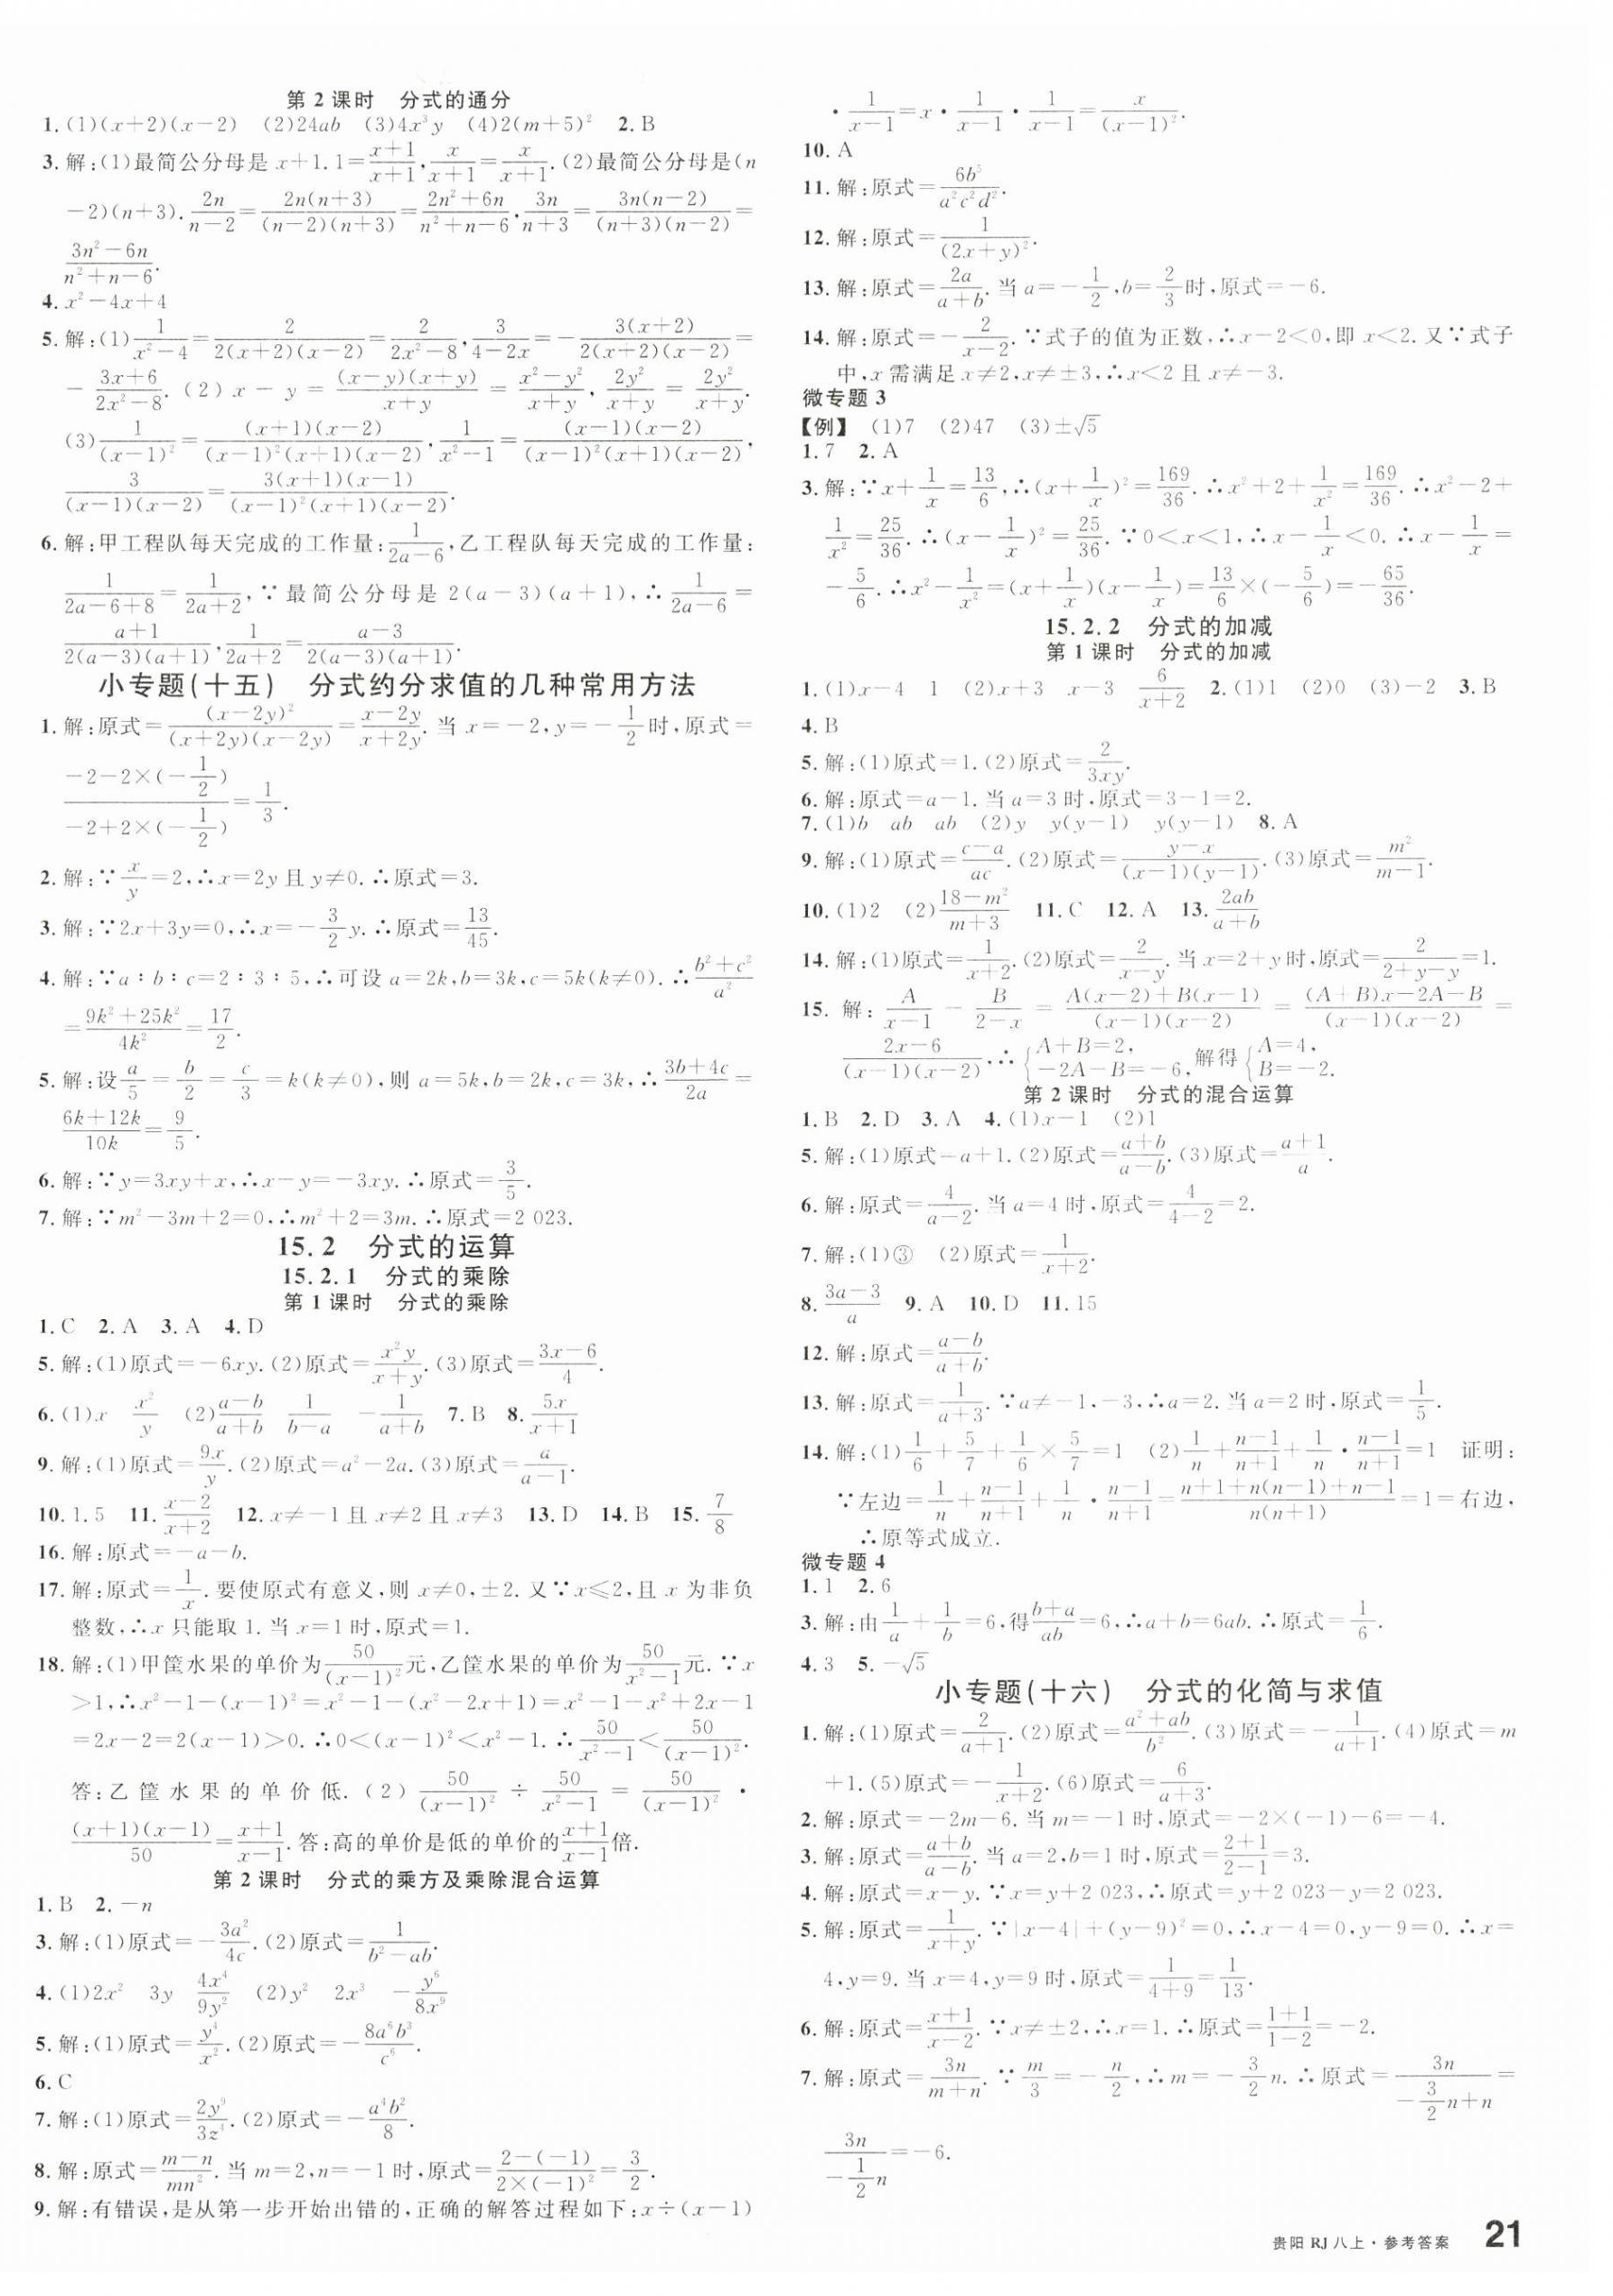 第2课时 分式的通分
1.(1)(x+2)(x-2) (2)24ab (3)4x³y (4)2(m+5)² 2.B
3.解:(1)最简公分母是 x+1.1=(x+1)/(x+1),x/(x+1)=x/(x+1).(2)最简公分母是(n
-2)(n+3).2n/(n-2)=2n(n+3)/((n-2)(n+3))=(2n²+6n)/(n²+n-6).3n/(n+3)=3n(n-2)/((n+3)(n-2))=
(3n²-6n)/(n²+n-6).
4.x²-4x+4
5.解:(1)1/(x²-4)=2/(2(x+2)(x-2))=2/(2x²-8),3/(4-2x)=-3(x+2)/(2(x+2)(x-2))=
-(3x+6)/(2x²-8).(2)x-y=(x-y)(x+y)/(x+y)=(x²-y²)/(x+y),2y²/(x+y)=2y²/(x+y).
(3)1/(x-1)²=(x+1)(x-2)/((x-1)²(x+1)(x-2)),1/(x²-1)=(x-1)(x-2)/((x-1)²(x+1)(x-2)),
3/((x-1)(x-2))=3(x+1)(x-1)/((x-1)²(x+1)(x-2)).
6.解:甲工程队每天完成的工作量:1/(2a-6),乙工程队每天完成的工作量:
1/(2a-6+8)=1/(2a+2),∵最简公分母是2(a-3)(a+1),∴1/(2a-6)=
(a+1)/(2(a-3)(a+1)),1/(2a+2)=(a-3)/(2(a-3)(a+1)).
小专题(十五) 分式约分求值的几种常用方法
1.解:原式=(x-2y)²/((x+2y)(x-2y))=(x-2y)/(x+2y).当 x=-2,y=-1/2时,原式=
(-2-2×(-1/2))/(-2+2×(-1/2))=1/3.
2.解:∵x/y=2,∴x=2y 且 y≠0.∴原式=3.
3.解:∵2x+3y=0,∴x=-3/2y.∴原式=13/45.
4.解:∵a∶b∶c=2∶3∶5,∴可设 a=2k,b=3k,c=5k(k≠0).∴(b²+c²)/a²
=(9k²+25k²)/4k²=17/2.
5.解:设a/5=b/2=c/3=k(k≠0),则 a=5k,b=2k,c=3k,∴(3b+4c)/2a=
(6k+12k)/10k=9/5.
6.解:∵y=3xy+x,∴x-y=-3xy.∴原式=3/5.
7.解:∵m²-3m+2=0,∴m²+2=3m.∴原式=2 023.
15.2 分式的运算
15.2.1 分式的乘除
第1课时 分式的乘除
1.C 2.A 3.A 4.D
5.解:(1)原式=-6xy.(2)原式=x²y/(x+y).(3)原式=(3x-6)/4.
6.(1)x x²/y (2)(a-b)/(a+b) 1/(b-a) -1/(a+b) 7.B 8.5x/(x+1)
9.解:(1)原式=9x/y.(2)原式=a²-2a.(3)原式=a/(a-1).
10.1.5 11.(x-2)/(x+2) 12.x≠-1 且 x≠2 且 x≠3 13.D 14.B 15.7/8
16.解:原式=-a-b.
17.解:原式=1/x.要使原式有意义,则 x≠0,±2.又∵x≤2,且 x 为非负
整数,∴x 只能取 1.当 x=1 时,原式=1.
18.解:(1)甲筐水果的单价为50/(x-1)²元,乙筐水果的单价为50/(x²-1)元.∵x
>1,∴x²-1-(x-1)²=x²-1-(x²-2x+1)=x²-1-x²+2x-1
=2x-2=2(x-1)>0.∴0<(x-1)²<x²-1.∴50/(x²-1)<50/(x-1)².
答:乙筐水果的单价低.(2)50/(x-1)²÷50/(x²-1)=50/(x-1)²·
(x+1)(x-1)/50=(x+1)/(x-1).答:高的单价是低的单价的(x+1)/(x-1)倍.
第2课时 分式的乘方及乘除混合运算
1.B 2.-n
3.解:(1)原式=-3a²/4c.(2)原式=1/(b²-ab).
4.(1)2x² 3y 4x⁴/9y² (2)y² 2x³ -y⁶/8x⁹
5.解:(1)原式=y⁴/x².(2)原式=-8a⁶b³/c⁶.
6.C
7.解:(1)原式=2y⁹/3z⁴.(2)原式=-a⁴b²/8.
8.解:原式=(m-n)/mn².当 m=2,n=-1 时,原式=(2-(-1))/(2×(-1)²)=3/2.
9.解:有错误,是从第一步开始出错的,正确的解答过程如下:x÷(x-1)
·1/(x-1)=x·1/(x-1)·1/(x-1)=x/(x-1)².
10.A
11.解:原式=6b⁵/a²c²d².
12.解:原式=1/(2x+y)².
13.解:原式=2a/(a+b).当 a=-1/2,b=2/3时,原式=-6.
14.解:原式=-2/(x-2).∵式子的值为正数,∴x-2<0,即 x<2.又∵式子
中,x 需满足 x≠2,x≠±3,∴x<2 且 x≠-3.
微专题 3
【例】 (1)7 (2)47 (3)±√5
1.7 2.A
3.解:∵x+1/x=13/6,∴(x+1/x)²=169/36.∴x²+2+1/x²=169/36.∴x²-2+
1/x²=25/36.∴(x-1/x)²=25/36.∵0<x<1,∴x-1/x<0.∴x-1/x=
-5/6.∴x²-1/x²=(x+1/x)(x-1/x)=13/6×(-5/6)=-65/36.
15.2.2 分式的加减
第1课时 分式的加减
1.(1)x-4 1 (2)x+3 x-3 6/(x+2) 2.(1)1 (2)0 (3)-2 3.B
4.B
5.解:(1)原式=1.(2)原式=2/3xy.
6.解:原式=a-1.当 a=3 时,原式=3-1=2.
7.(1)b ab ab (2)y y(y-1) y(y-1) 8.A
9.解:(1)原式=(c-a)/ac.(2)原式=(y-x)/((x-1)(y-1)).(3)原式=m²/(m-1).
10.(1)2 (2)(18-m²)/(m+3) 11.C 12.A 13.2ab/(a+b)
14.解:(1)原式=1/(x+2).(2)原式=2/(x-y).当 x=2+y 时,原式=2/(2+y-y)=1.
15.解:A/(x-1)-B/(2-x)=(A(x-2)+B(x-1))/((x-1)(x-2))=((A+B)x-2A-B)/((x-1)(x-2))=
(2x-6)/((x-1)(x-2)),∴{A+B=2, -2A-B=-6,解得{A=4, B=-2.
第2课时 分式的混合运算
1.B 2.D 3.A 4.(1)x-1 (2)1
5.解:(1)原式=a+1.(2)原式=(a+b)/(a-b).(3)原式=(a+1)/a.
6.解:原式=4/(a-2).当 a=4 时,原式=4/(4-2)=2.
7.解:(1)③ (2)原式=1/(x+2).
8.(3a-3)/a 9.A 10.D 11.15
12.解:原式=(a-b)/(a+b).
13.解:原式=1/(a+3).∵a≠-1,-3,∴a=2.当 a=2 时,原式=1/5.
14.解:(1)1/6+5/7+1/6×5/7=1 (2)1/n+(n-1)/(n+1)+1/n·(n-1)/(n+1)=1 证明:
∵左边=1/n+(n-1)/(n+1)+1/n·(n-1)/(n+1)=(n+1+n(n-1)+n-1)/(n(n+1))=1=右边,
∴原等式成立.
微专题 4
1.1 2.6
3.解:由1/a+1/b=6,得(b+a)/ab=6,∴a+b=6ab.∴原式=1/6.
4.3 5.-√5
小专题(十六) 分式的化简与求值
1.解:(1)原式=2/(a+1).(2)原式=(a²+ab)/b².(3)原式=-1/(a+1).(4)原式=m
+1.(5)原式=-1/(x+2).(6)原式=6/(a+3).
2.解:原式=-2m-6.当 m=-1 时,原式=-2×(-1)-6=-4.
3.解:原式=(a+b)/(a-b).当 a=2,b=1 时,原式=(2+1)/(2-1)=3.
4.解:原式=x-y.∵x=y+2 023,∴原式=y+2 023-y=2 023.
5.解:原式=1/(x+y).∵|x-4|+(y-9)²=0,∴x-4=0,y-9=0.∴x=
4,y=9.当 x=4,y=9 时,原式=1/(4+9)=1/13.
6.解:原式=(x+1)/(x-2).∵x≠±2,∴x=1.∴原式=(1+1)/(1-2)=-2.
7.解:原式=3n/(m+n).∵m/3=-n/2,∴m=-3/2n.∴原式=3n/(-3/2n+n)=
3n/(-1/2n)=-6.
贵阳 RJ 八上·参考答案 21